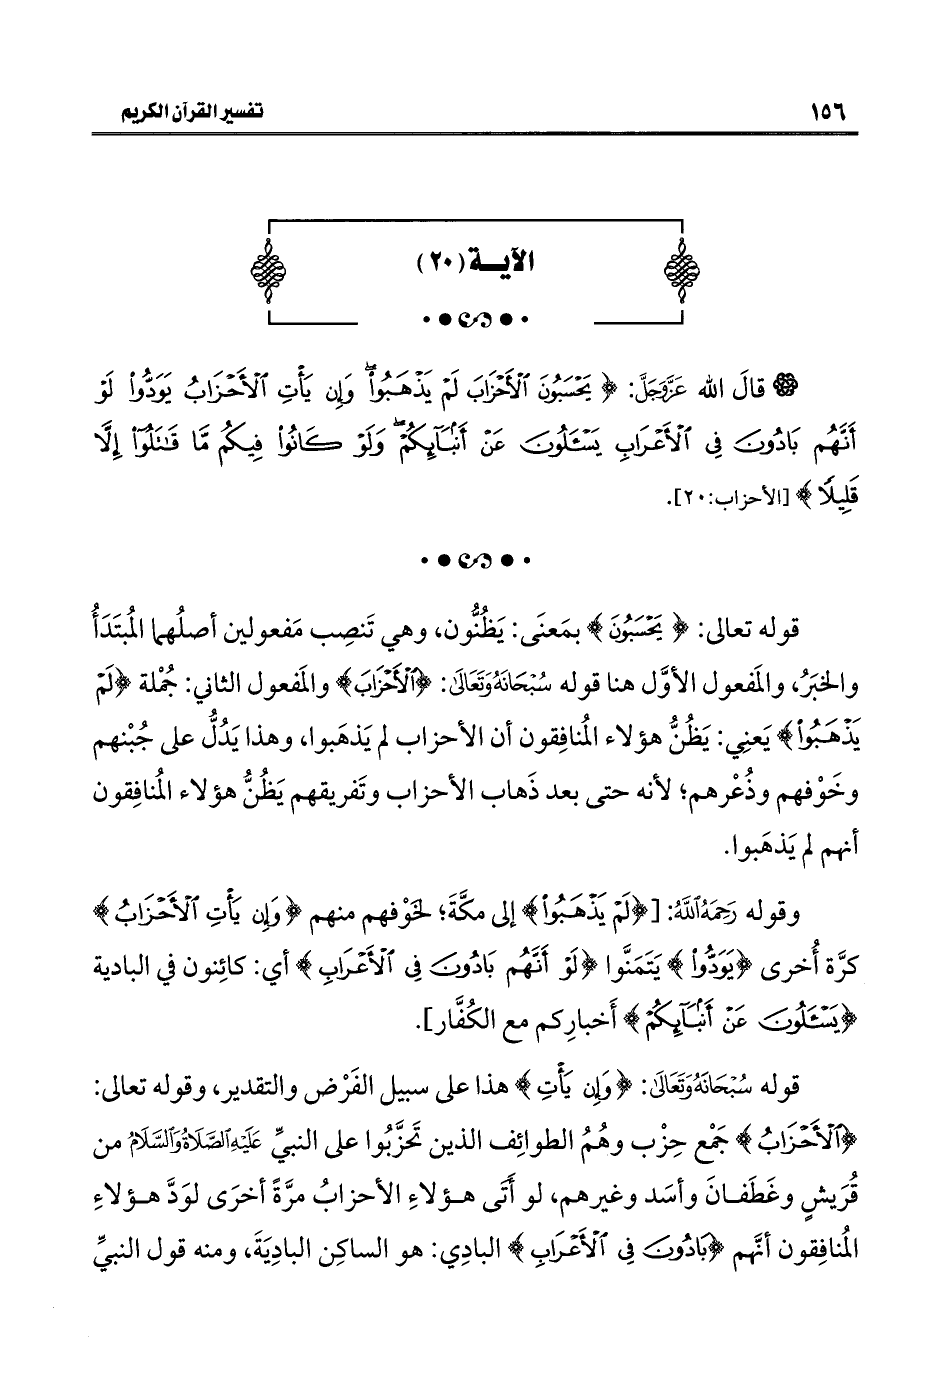 ١٥٦ تفسير القرآن الكريم
الآيـــة (٢٠)
قالَ الله عَزَّوَجَلَّ: ﴿ يَحْسَبُونَ ٱلْأَحْزَابَ لَمْ يَذْهَبُوا۟ ۖ وَإِن يَأْتِ ٱلْأَحْزَابُ يَوَدُّوا۟ لَوْ
أَنَّهُم بَادُونَ فِى ٱلْأَعْرَابِ يَسْـَٔلُونَ عَنْ أَنۢبَآئِكُمْ ۖ وَلَوْ كَانُوا۟ فِيكُم مَّا قَـٰتَلُوٓا۟ إِلَّا
قَلِيلًا ﴾ [الأحزاب:٢٠].
قوله تعالى: ﴿ يَحْسَبُونَ ﴾ بمَعنَى: يَظُنُّون، وهي تَنصِب مَفعولين أصلُهما المُبتَدَأُ
والخبَرُ، والمَفعول الأوَّل هنا قوله سُبْحَانَهُ وَتَعَالَىٰ: ﴿ٱلْأَحْزَابَ﴾ والمَفعول الثاني: جُمْلة ﴿لَمْ
يَذْهَبُوا۟﴾ يَعنِي: يَظُنُّ هؤلاء المُنافِقون أن الأحزاب لم يَذهَبوا، وهذا يَدُلُّ على جُبْنهم
وخَوْفهم وذُعْرهم؛ لأنه حتى بعد ذَهاب الأحزاب وتَفريقهم يَظُنُّ هؤلاء المُنافِقون
أنهم لم يَذهَبوا.
وقوله رَحِمَهُ اللَّهُ: [﴿لَمْ يَذْهَبُوا۟﴾ إلى مكَّةَ؛ لخَوْفهم منهم ﴿وَإِن يَأْتِ ٱلْأَحْزَابُ﴾
كرَّة أُخرى ﴿يَوَدُّوا۟ ﴾ يَتَمَنَّوا ﴿لَوْ أَنَّهُم بَادُونَ فِى ٱلْأَعْرَابِ ﴾ أي: كائِنون في البادية
﴿يَسْـَٔلُونَ عَنْ أَنۢبَآئِكُمْ﴾ أَخبارِكم مع الكُفَّار].
قوله سُبْحَانَهُ وَتَعَالَىٰ: ﴿ وَإِن يَأْتِ ﴾ هذا على سبيل الفَرْض والتقدير، وقوله تعالى:
﴿ٱلْأَحْزَابُ ﴾ جَمْع حِزْب وهُمُ الطوائِف الذين تَحزَّبُوا على النبيِّ عَلَيْهِ الصَّلَاةُ وَالسَّلَامُ من
قُرَيشٍ وغَطَفـانَ وأسَد وغيرهم، لو أَتَى هـؤلاءِ الأحزابُ مرَّةً أخرَى لوَدَّ هـؤلاءِ
المُنافِقون أنَّهم ﴿بَادُونَ فِى ٱلْأَعْرَابِ ﴾ البادِي: هو الساكِن البادِيَةَ، ومنه قول النبيِّ